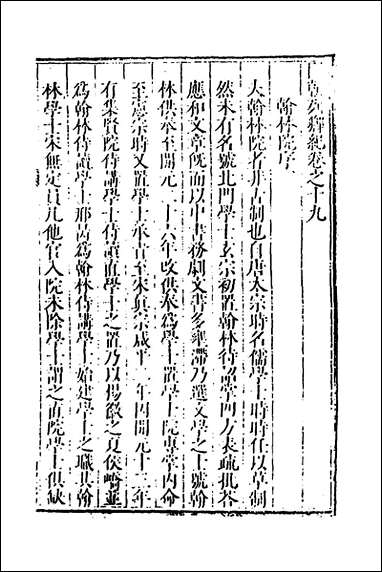 翰苑羣紀卷之十九
翰林院序
夫翰林院者非古制也自唐太宗時名儒學士時時任以草制
然未有名號北門學士玄宗初置翰林待詔掌四方表疏批荅
應和文章旣而以中書務劇文書多壅滯乃選文學之士號翰
林供奉至開元二十六年改供奉爲學士置學士院專掌內命
至憲宗時又置學士承旨至宋眞宗咸平二年因開元十三年
有集賢院侍講學士侍讀直學士之置乃以楊徽之夏侯嶠並
爲翰林侍讀學士邢昺爲翰林侍講學士始建學士之職其翰
林學士宋無定員凡他官入院未除學士謂之直院學士俱缺